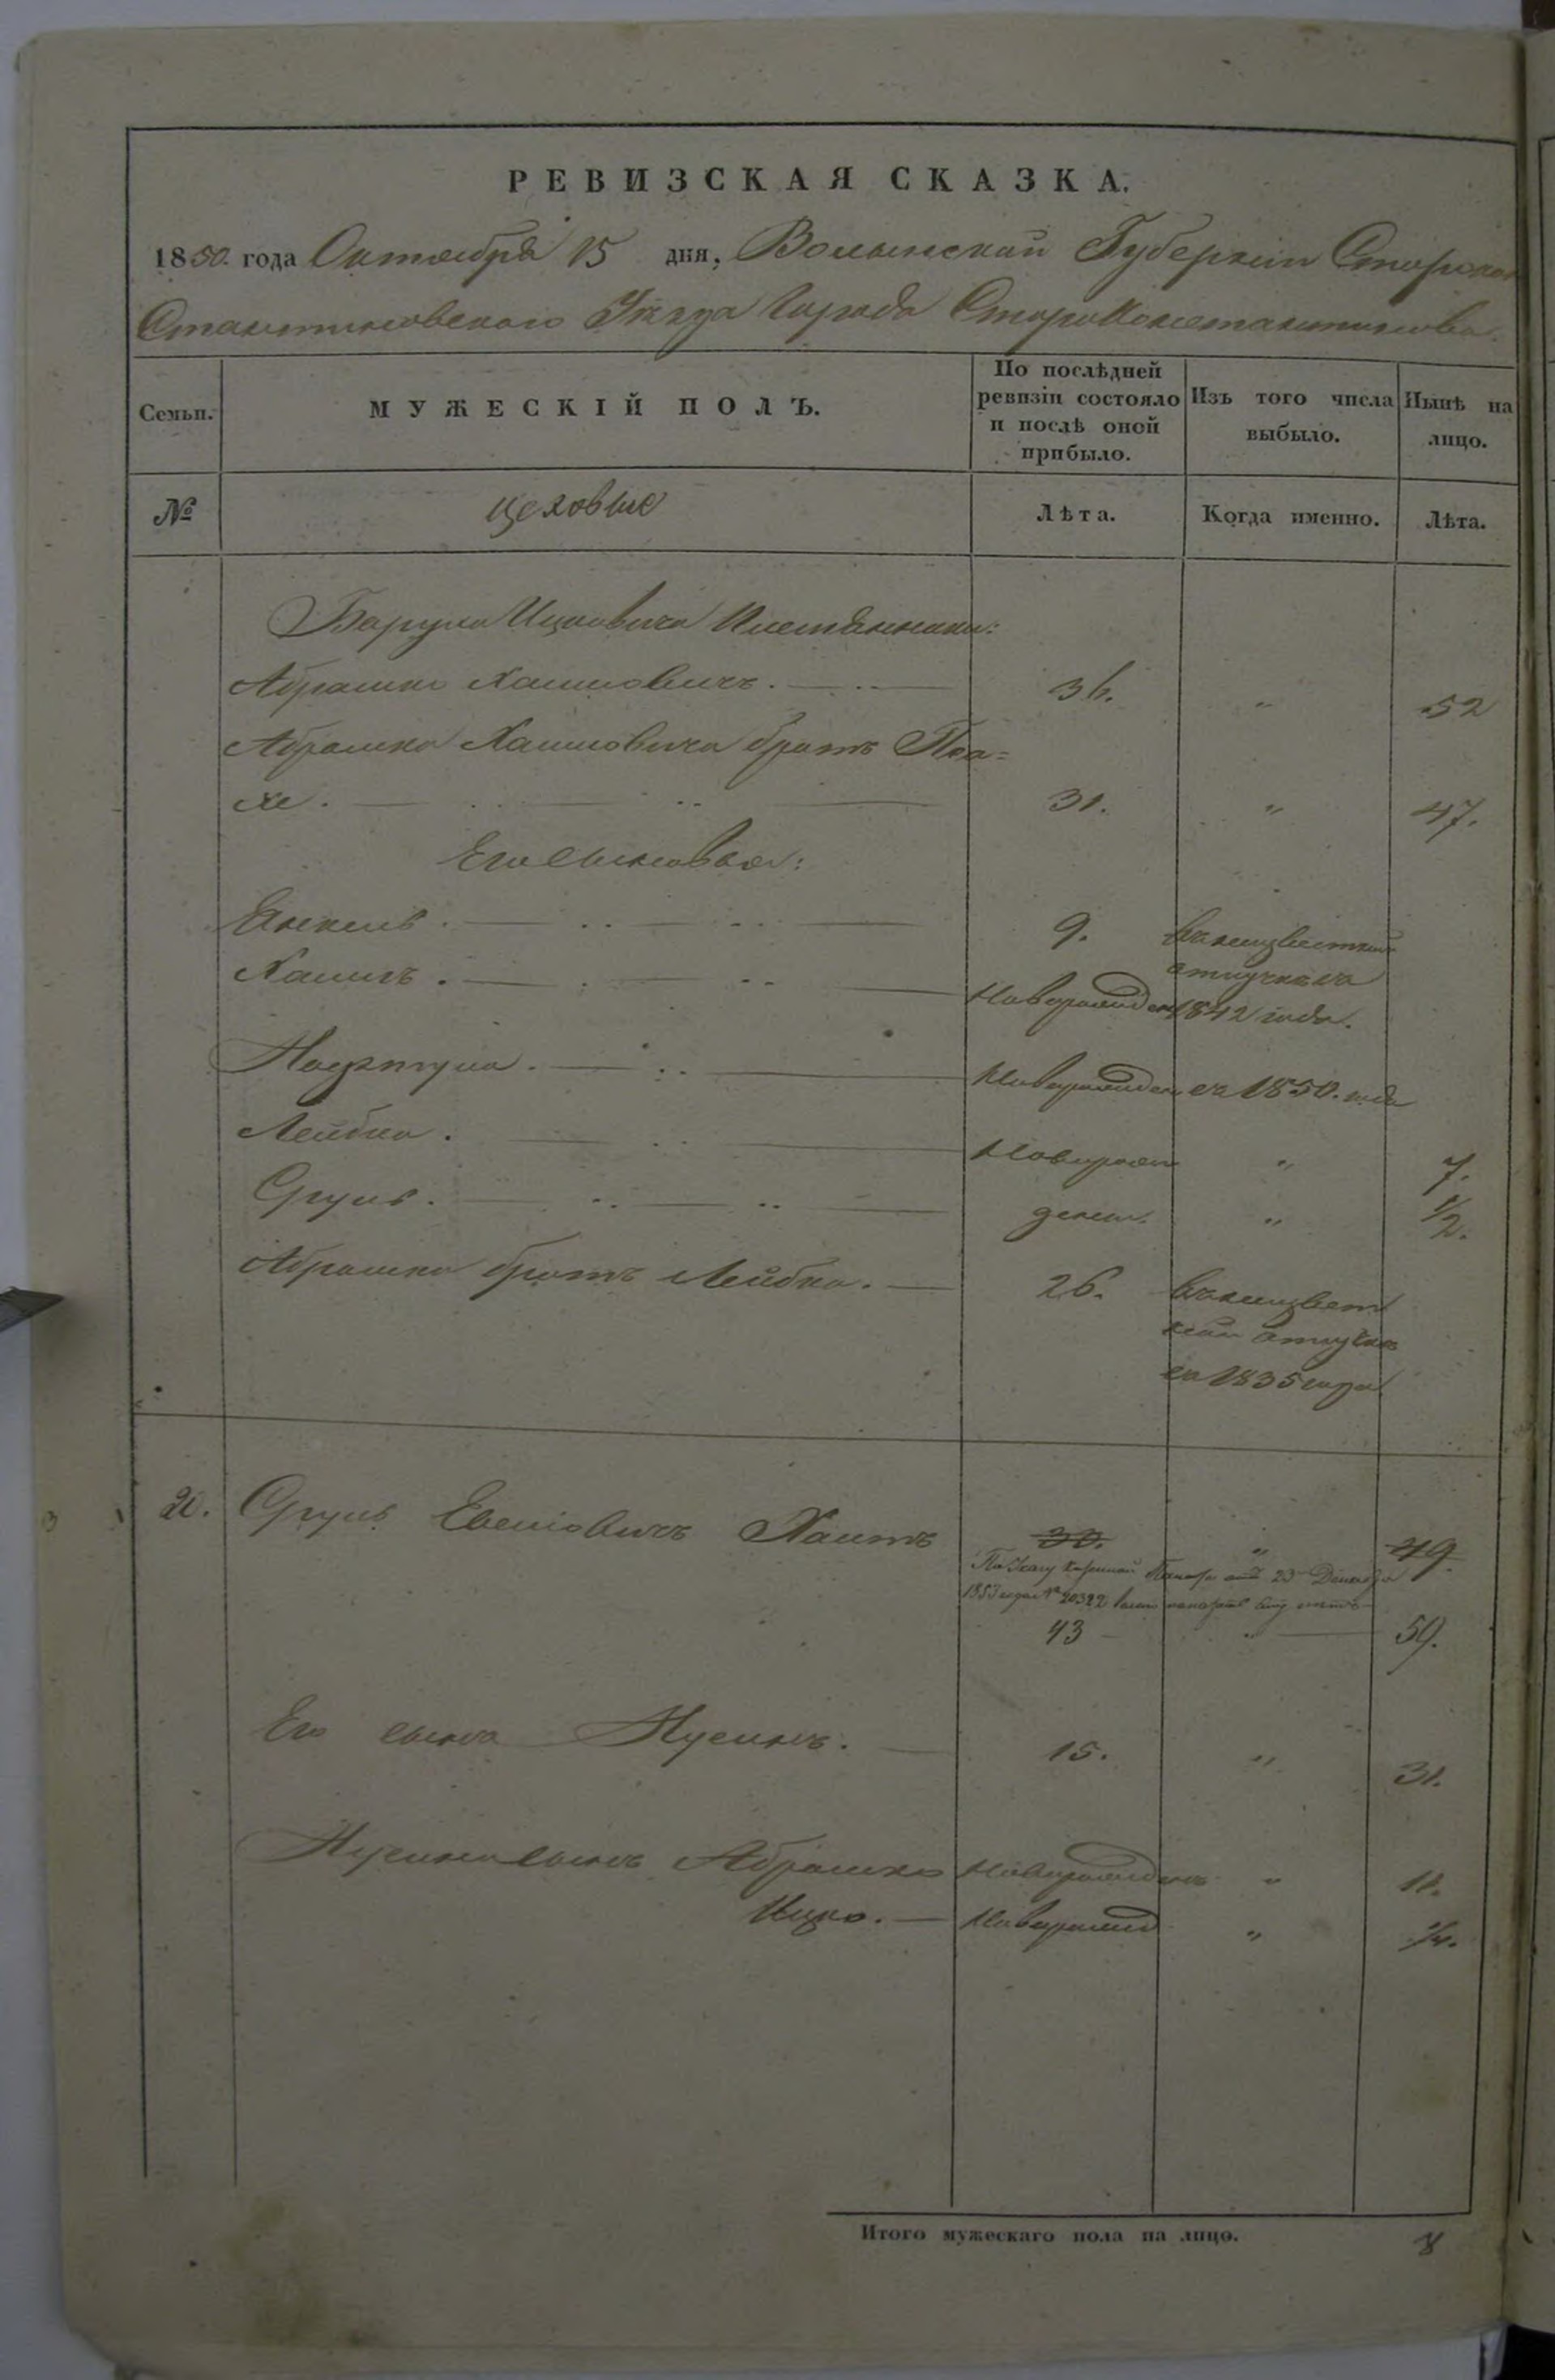 РЕВИЗСКАЯ СКАЗКА.
1850. года Октября 15 дня, Волынской Губерніи Старокон
Стантиновского Уѣзда Города Староконстантинова.
Семьи. МУЖЕСКІЙ ПОЛЪ. По послѣдней ревизіи состояло и послѣ оной прибыло. Изъ того числа выбыло. Нынѣ на лицо.
№ цеховые Лѣта. Когда именно. Лѣта.
Баруха Ицковича Племянники:
Абрашко Хаимовичъ. 36. " 52
Абрашка Хаимовича братъ
хе. 31. " 47.
Его сыновья:
Янкель. 9. въ неизвестной
отлучке съ
Хаимъ. Новорожден 1842 года.
Новорожден съ 1850. года
Лейбко. Новорожден " 7.
Сруль. " 1/2.
Абрашка братъ Лейбко. 26. въ неизвест
ной отлучке
съ 1835 года
20. Сруль Хаитъ 30. " 49.
По Указу Казенной Палаты отъ 23 Декабря
1853 года № 20322
43 " 59.
Его сынъ Нусинъ. 15. " 31.
Нусина сынъ Абрашко Новорожденъ " 11.
Ицко. Новорожд "
Итого мужескаго пола на лицо. 8